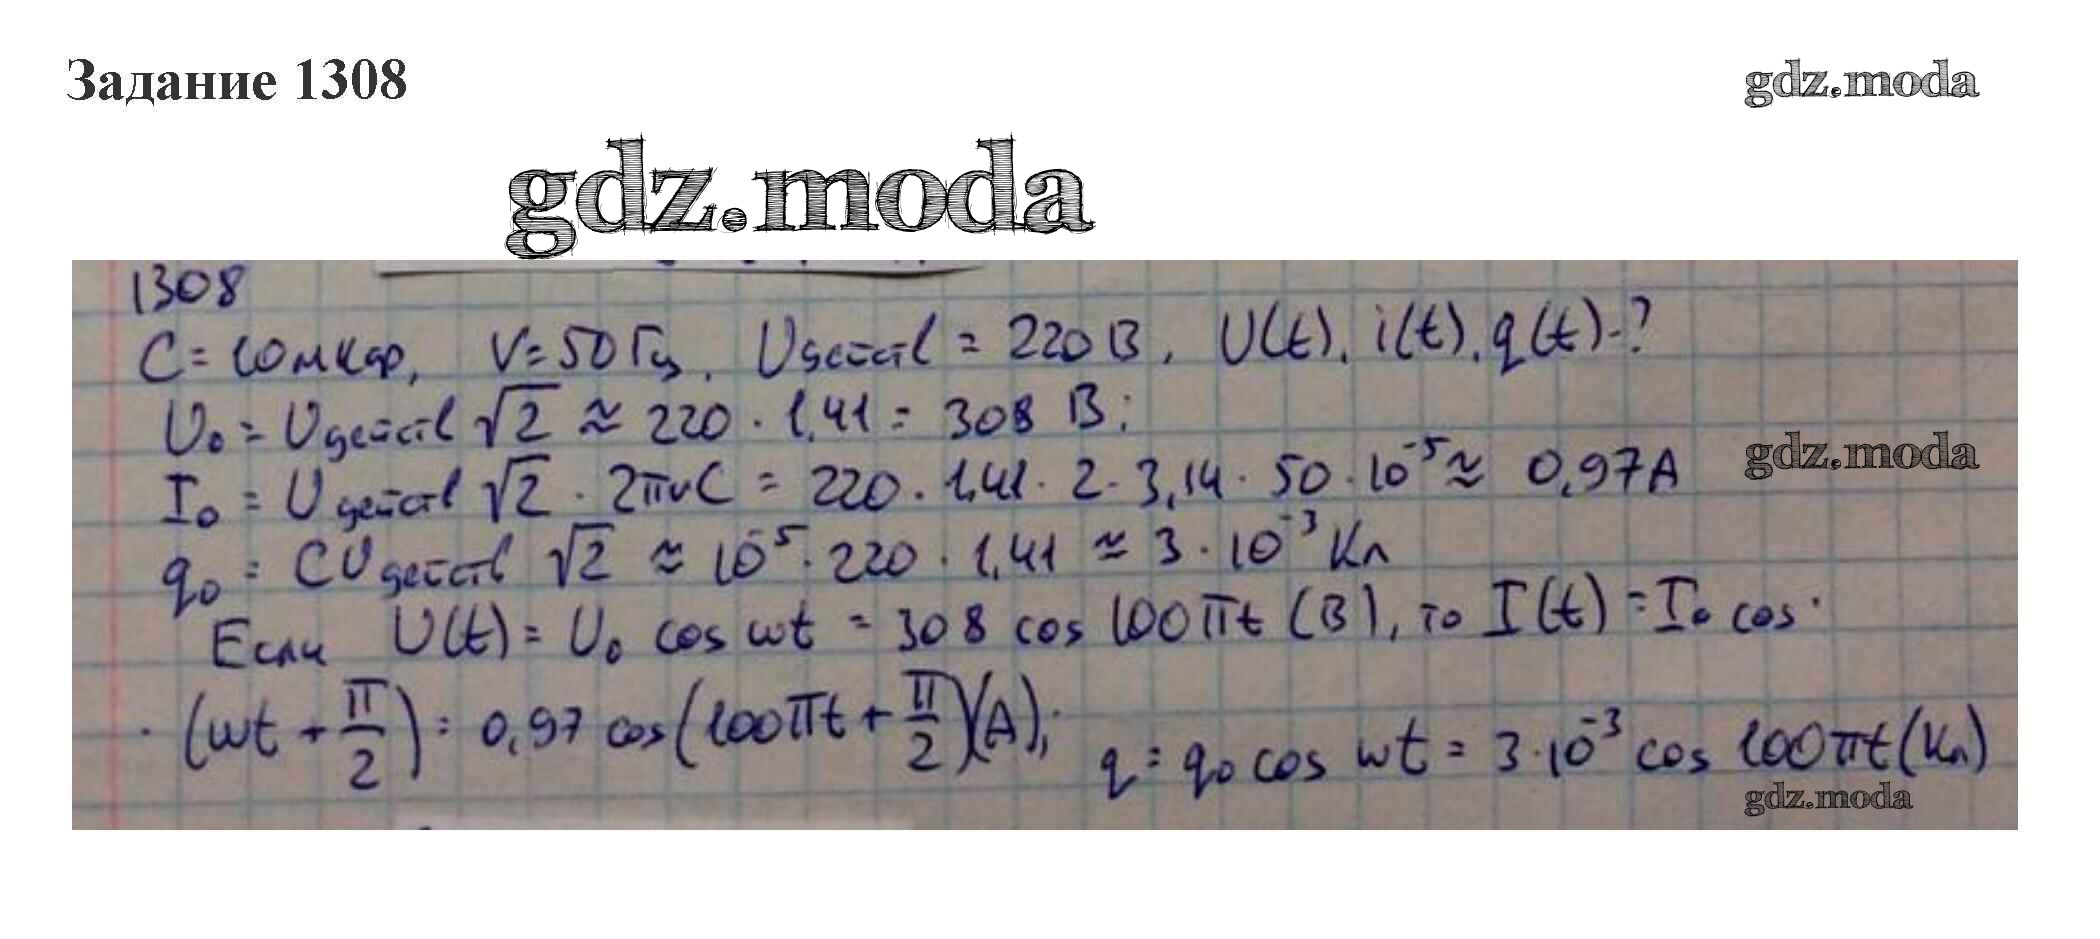 Задание 1308
gdz.moda
gdz.moda
1308
C = 10 мкф, ν = 50 Гц, Uдейств = 220 В, U(t), i(t), q(t) - ?
U₀ = Uдейств √2 ≈ 220 · 1,41 = 308 В;
I₀ = Uдейств √2 · 2πνC = 220 · 1,41 · 2 · 3,14 · 50 · 10⁻⁵ ≈ 0,97 А
gdz.moda
q₀ = CUдейств √2 ≈ 10⁻⁵ · 220 · 1,41 ≈ 3 · 10⁻³ Кл
Если U(t) = U₀ cos ωt = 308 cos 100πt (В), то I(t) = I₀ cos ·
· (ωt + π/2) = 0,97 cos (100πt + π/2)(А); q = q₀ cos ωt = 3 · 10⁻³ cos 100πt (Кл)
gdz.moda